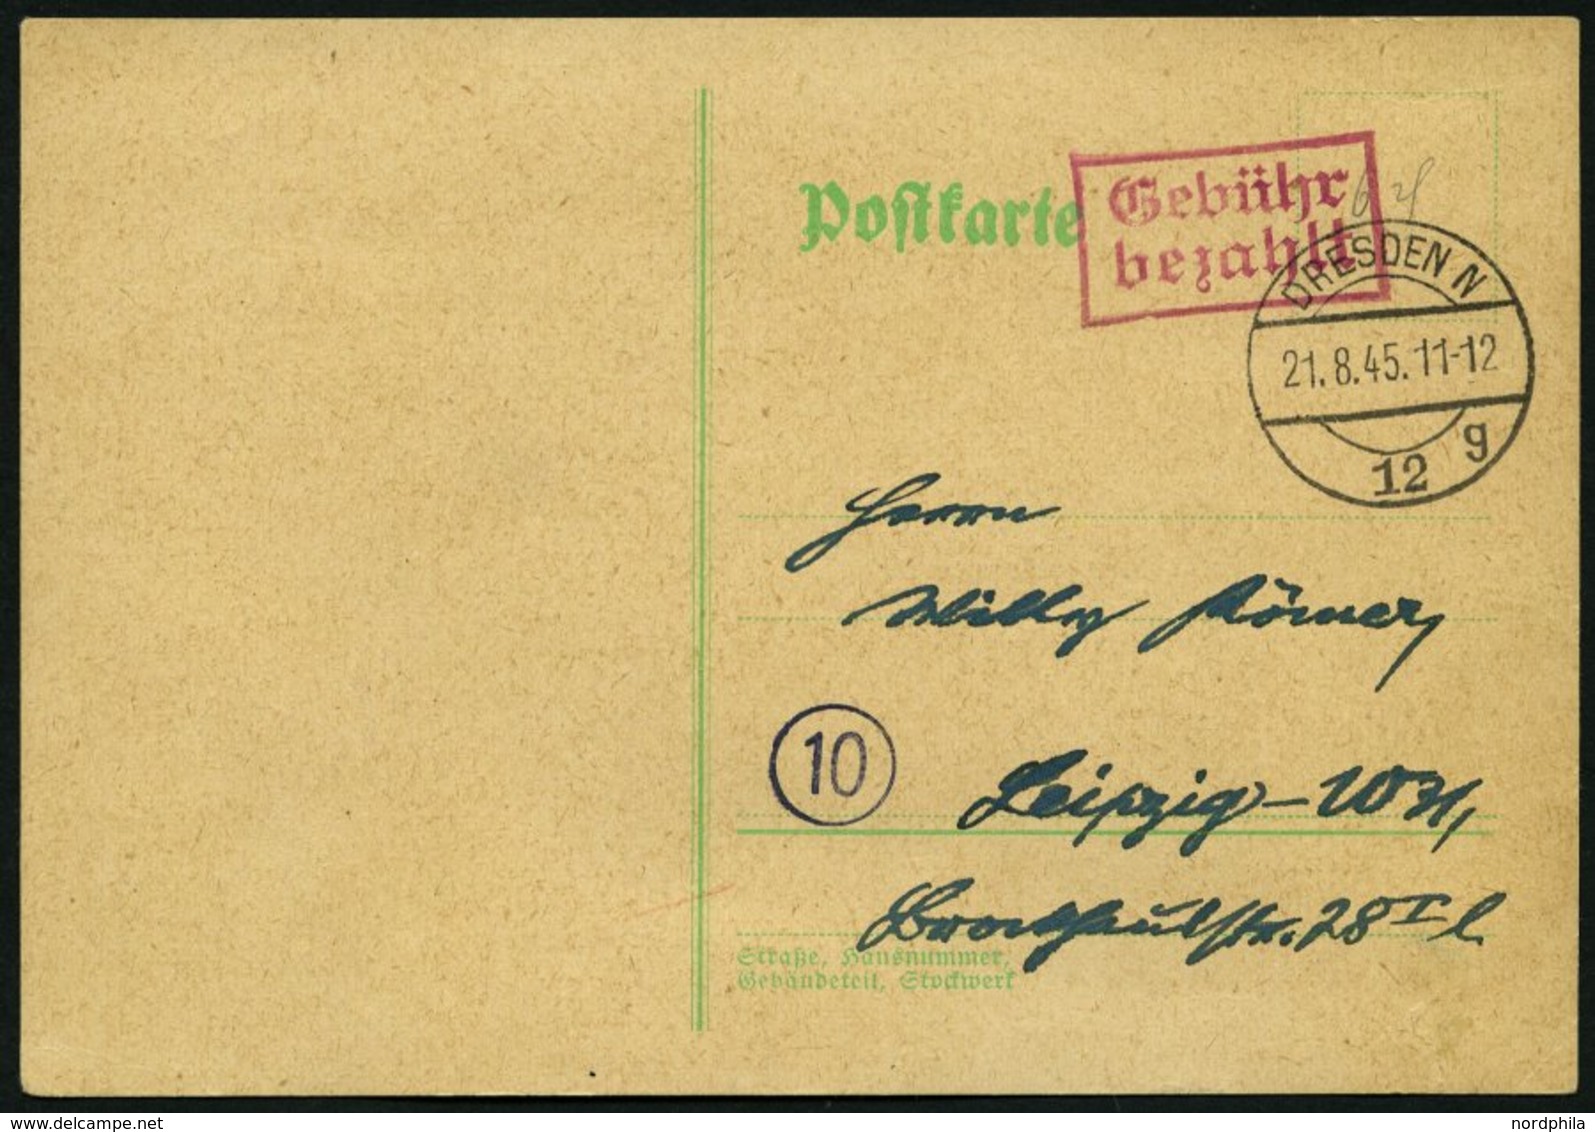 Postkarte
Gebühr
bezahlt
6 rf
DRESDEN N
21.8.45.11-12
12 g
Herrn
Willy Römer,
10
Leipzig-W31,
Brockhausstr. 28 I l
Straße, Hausnummer,
Gebäudeteil, Stockwerk
www.delcampe.net
nordphila